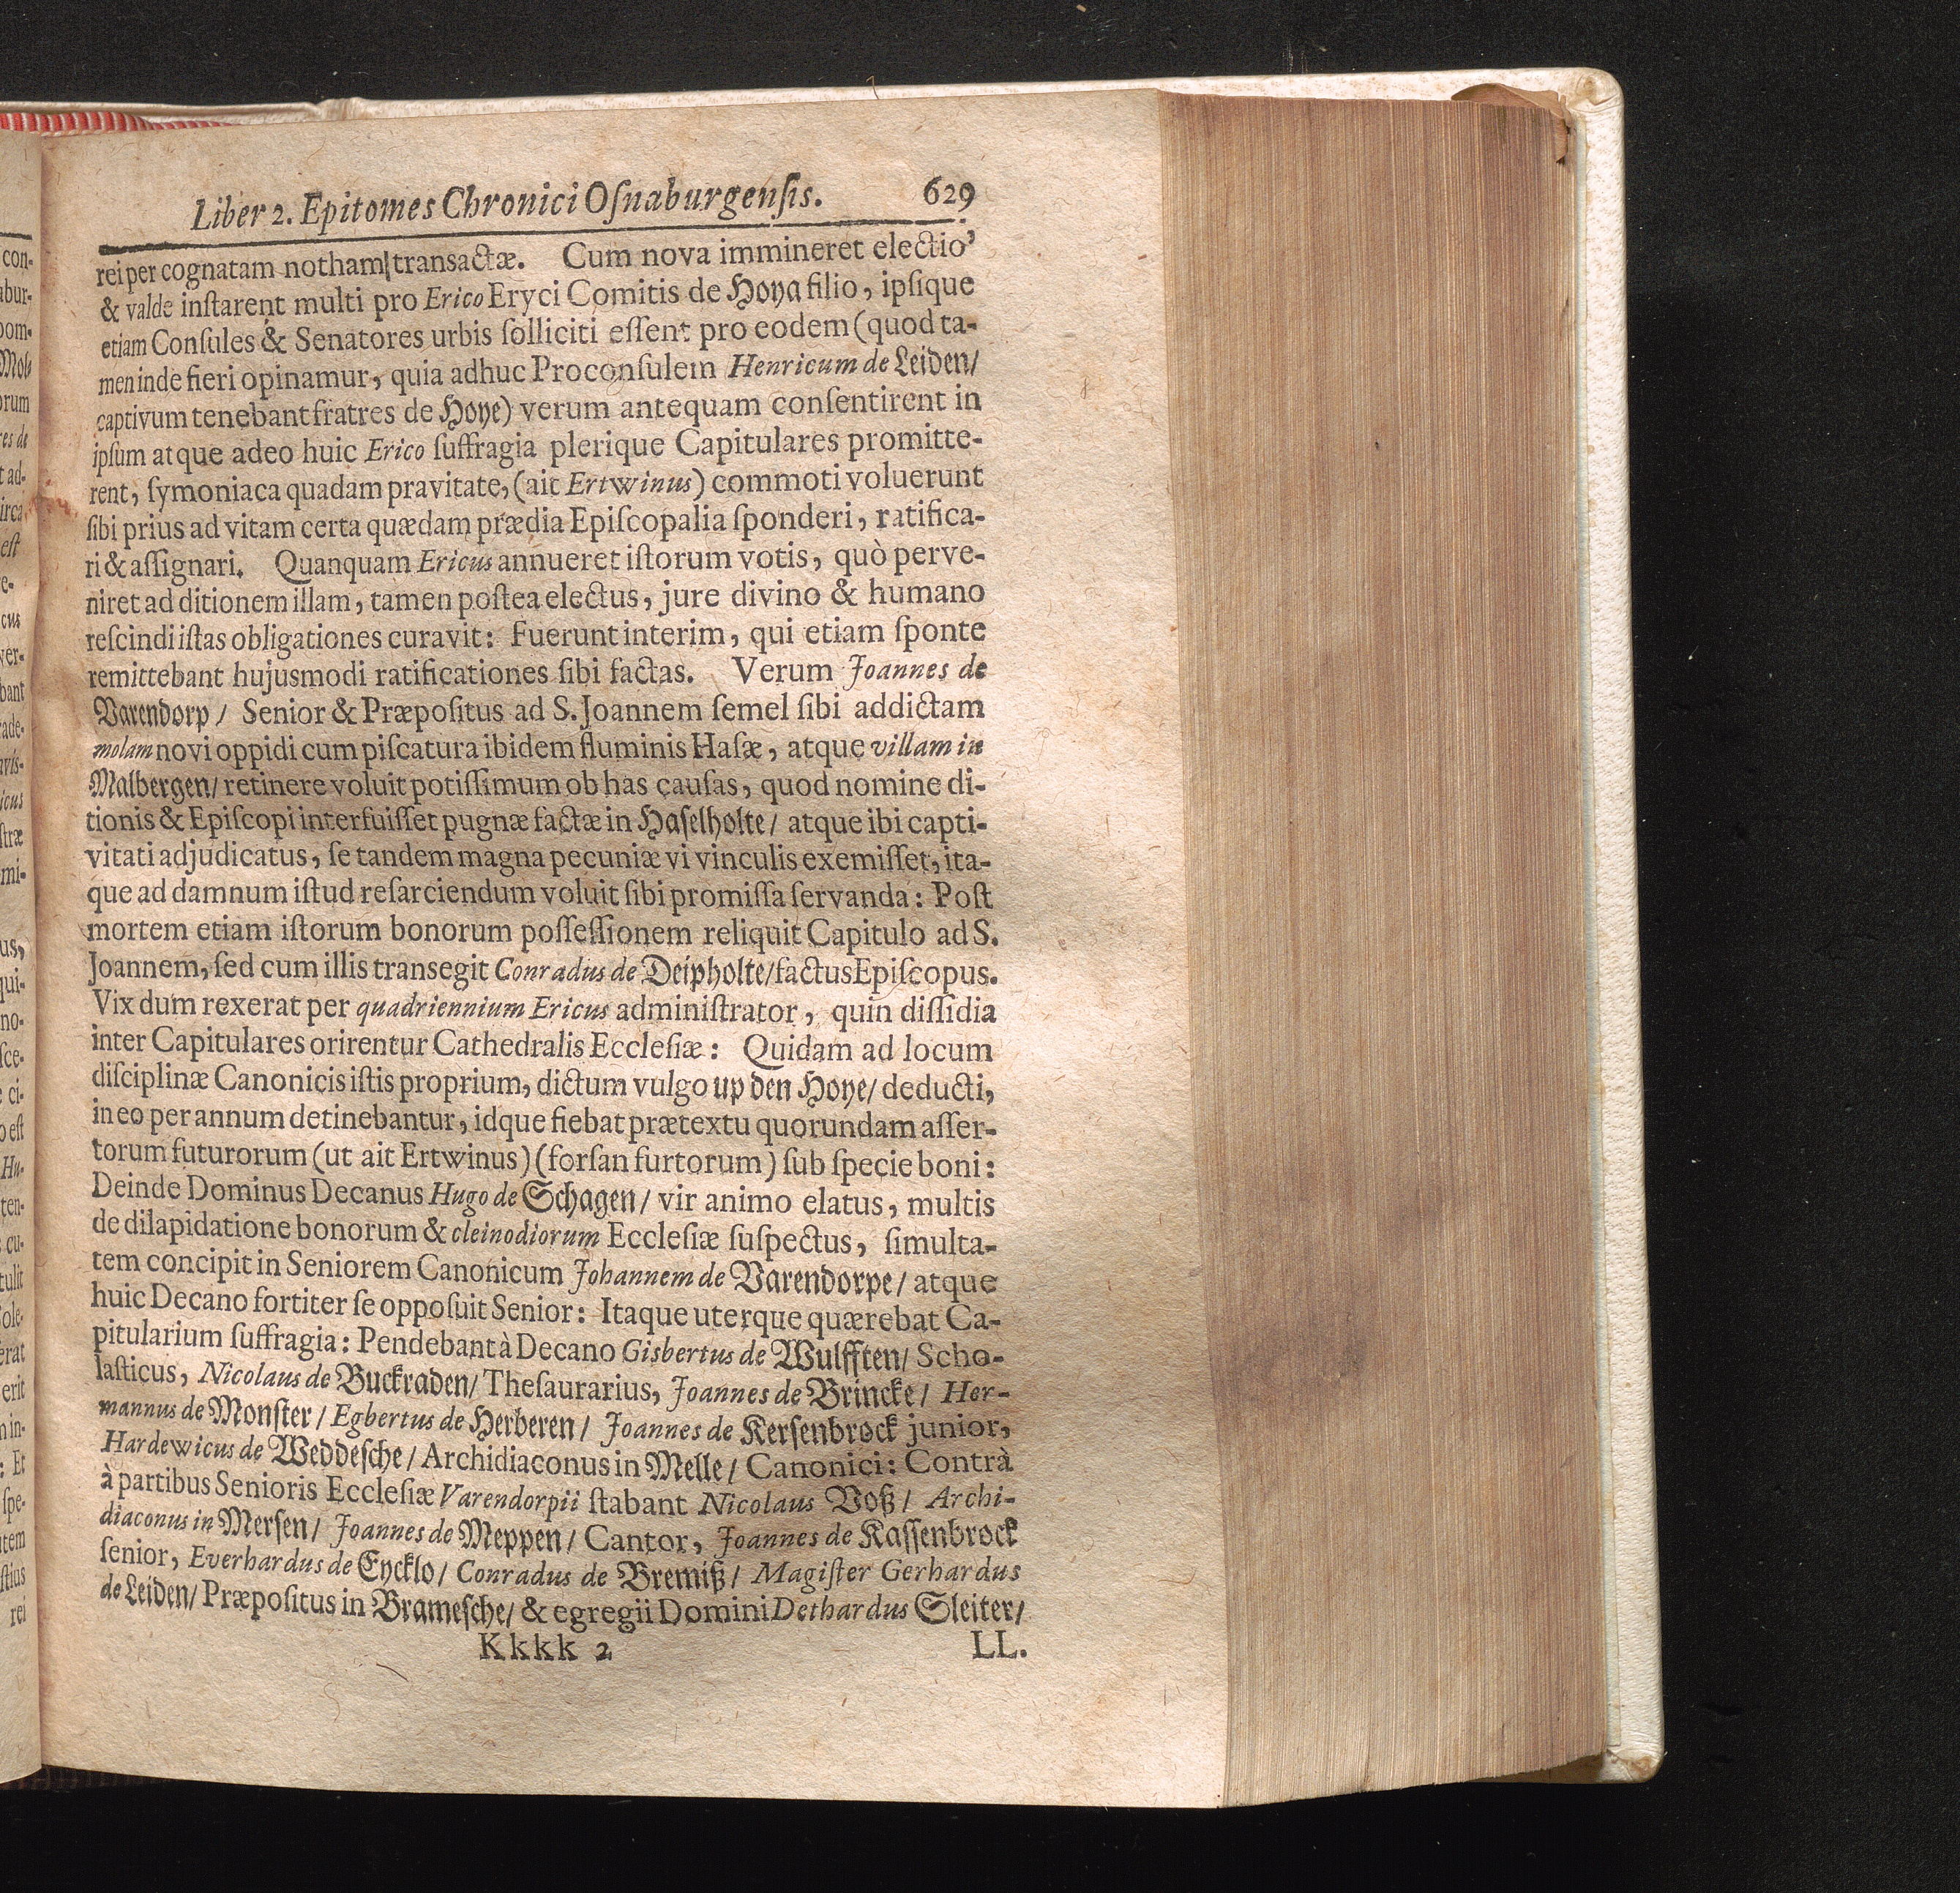 Liber 2. Epitomes Chronici Oſnaburgenſis. 629
rei per cognatam notham transactæ. Cum nova immineret electio'
& valde inſtarent multi pro Erico Eryci Comitis de Hoya filio, ipſique
etiam Conſules & Senatores urbis ſolliciti eſſent pro eodem (quod ta-
men inde fieri opinamur, quia adhuc Proconſulem Henricum de Leiden/
captivum tenebant fratres de Hoye) verum antequam conſentirent in
ipſum atque adeo huic Erico ſuffragia plerique Capitulares promitte-
rent, ſymoniaca quadam pravitate, (ait Ertwinus) commoti voluerunt
ſibi prius ad vitam certa quædam prædia Epiſcopalia ſponderi, ratifica-
ri & aſſignari. Quanquam Ericus annueret iſtorum votis, quò perve-
niret ad ditionem illam, tamen poſtea electus, jure divino & humano
reſcindi iſtas obligationes curavit: Fuerunt interim, qui etiam ſponte
remittebant hujusmodi ratificationes ſibi factas. Verum Joannes de
Varendorp/ Senior & Præpoſitus ad S. Joannem ſemel ſibi addictam
molam novi oppidi cum piſcatura ibidem fluminis Haſæ, atque villam in
Malbergen/ retinere voluit potiſſimum ob has cauſas, quod nomine di-
tionis & Epiſcopi interfuiſſet pugnæ factæ in Haſelholte/ atque ibi capti-
vitati adjudicatus, ſe tandem magna pecuniæ vi vinculis exemiſſet, ita-
que ad damnum iſtud reſarciendum voluit ſibi promiſſa ſervanda: Poſt
mortem etiam iſtorum bonorum poſſeſſionem reliquit Capitulo ad S.
Joannem, ſed cum illis transegit Conradus de Deipholte/ factus Epiſcopus.
Vix dum rexerat per quadriennium Ericus adminiſtrator, quin diſſidia
inter Capitulares orirentur Cathedralis Eccleſiæ: Quidam ad locum
diſciplinæ Canonicis iſtis proprium, dictum vulgo up den Hoye/ deducti,
in eo per annum detinebantur, idque fiebat prætextu quorundam aſſer-
torum futurorum (ut ait Ertwinus) (forſan furtorum) ſub ſpecie boni:
Deinde Dominus Decanus Hugo de Schagen/ vir animo elatus, multis
de dilapidatione bonorum & cleinodiorum Eccleſiæ ſuſpectus, ſimulta-
tem concipit in Seniorem Canonicum Johannem de Varendorpe/ atque
huic Decano fortiter ſe oppoſuit Senior: Itaque uterque quærebat Ca-
pitularium ſuffragia: Pendebant à Decano Gisbertus de Wulfften/ Scho-
laſticus, Nicolaus de Buckraden/ Theſaurarius, Joannes de Brincke/ Her-
mannus de Monſter/ Egbertus de Herberen/ Joannes de Kerſenbrock junior,
Hardewicus de Weddeſche/ Archidiaconus in Melle/ Canonici: Contrà
à partibus Senioris Eccleſiæ Varendorpii ſtabant Nicolaus Voß/ Archi-
diaconus in Merſen/ Joannes de Meppen/ Cantor, Joannes de Kaſſenbrock
ſenior, Everhardus de Eycklo/ Conradus de Bremiß/ Magiſter Gerhardus
de Leiden/ Præpoſitus in Brameſche/ & egregii Domini Dethardus Sleiter/
Kkkk 2 LL.